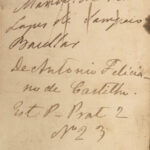 Lopes de Sampaio
Bacellar
De Antonio Felicia-
no de Castilho.
Est. P- Prat 2
Nº 23